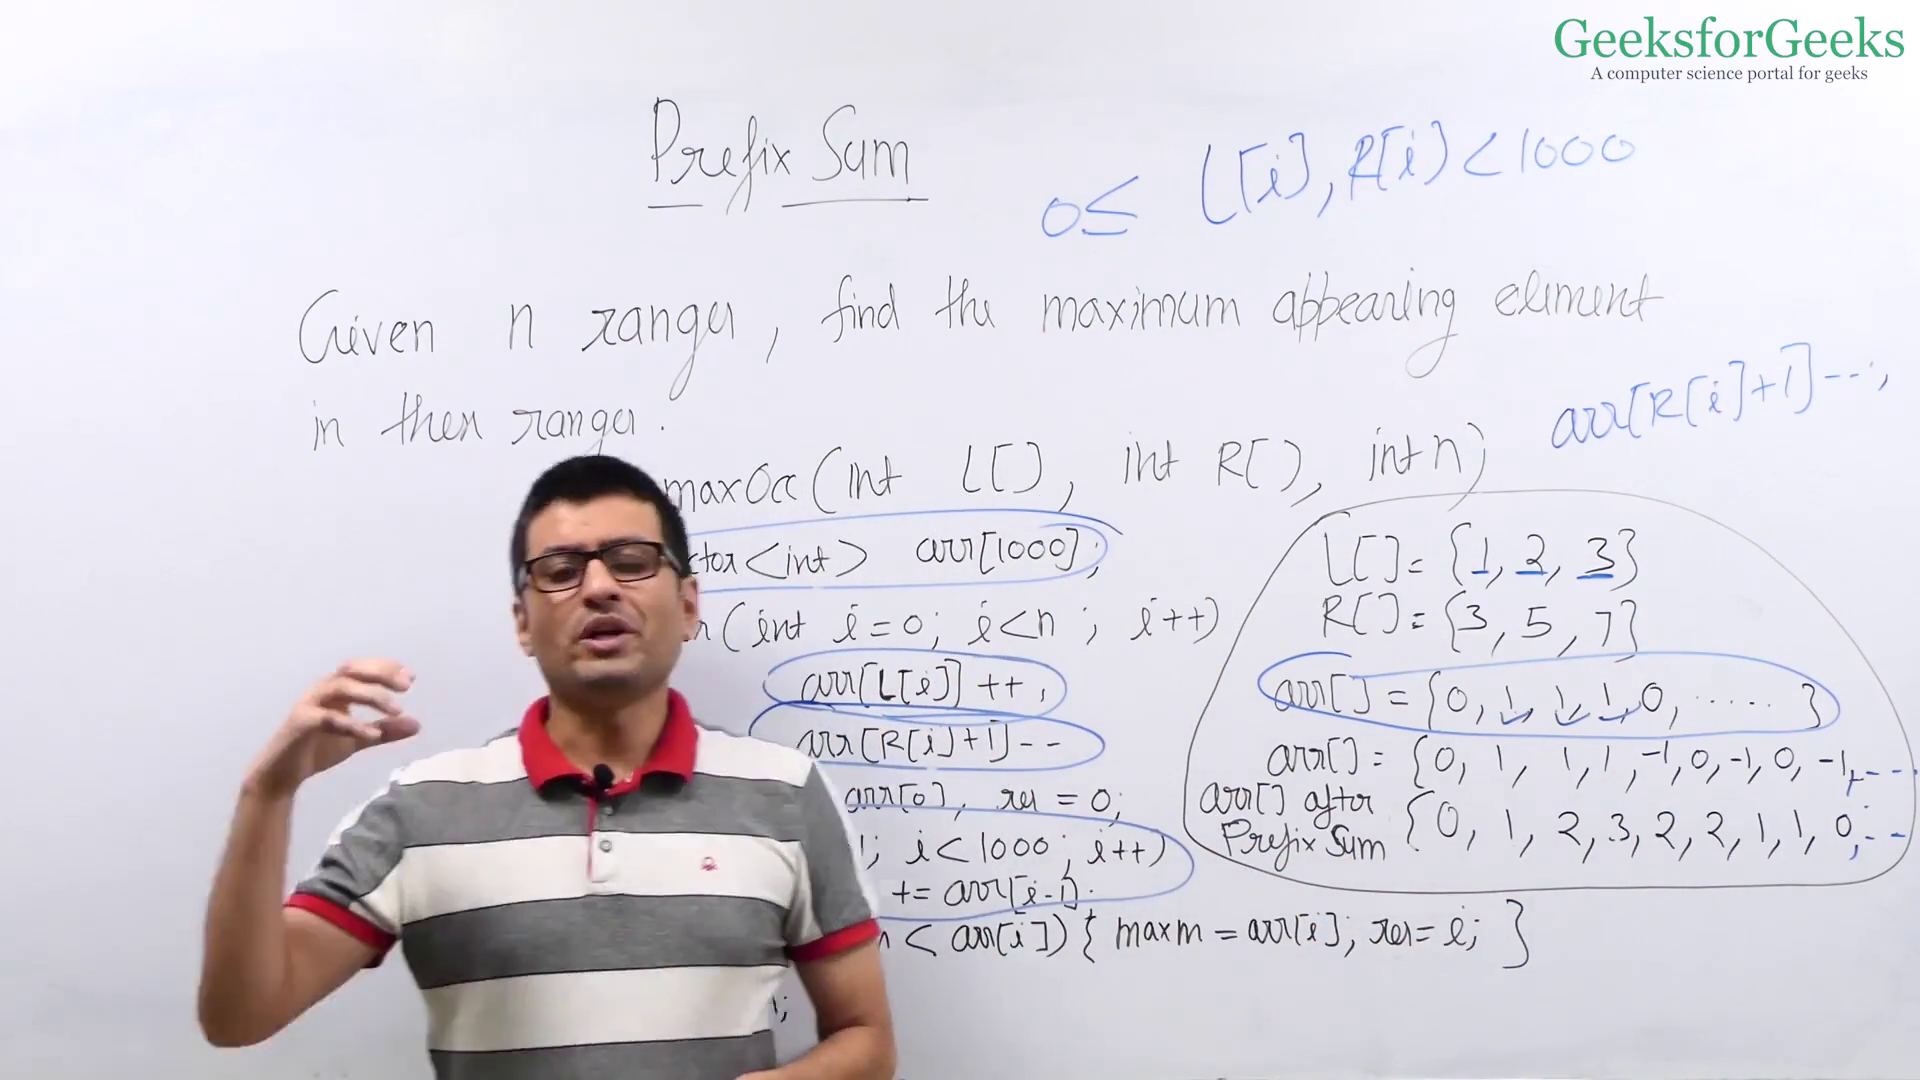 GeeksforGeeks
A computer science portal for geeks
Prefix Sum
0≤ L[i], R[i] < 1000
Given n ranges, find the maximum appearing element
in these ranges.
arr[R[i]+1]--;
maxOcc(int L[], int R[], int n)
ctor<int> arr[1000];
r(int i=0; i<n; i++)
arr[L[i]]++;
arr[R[i]+1]--
arr[0], res = 0;
1; i<1000; i++)
+= arr[i-1];
< arr[i]){ maxm = arr[i]; res = i; }
;
L[]= {1, 2, 3}
R[]= {3, 5, 7}
arr[] = {0, 1, 1, 1, 0, ..... }
arr[]= {0, 1, 1, 1, -1, 0, -1, 0, -1, ---
arr[] after {0, 1, 2, 3, 2, 2, 1, 1, 0, --
Prefix Sum